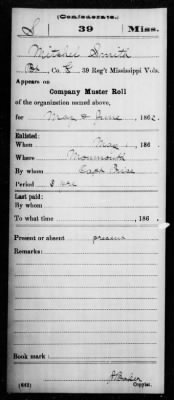 (Confederate.)
S 39 Miss.
Mitchel Smith
Co. 39 Reg't Mississippi Vols.
Appears on
Company Muster Roll
of the organization named above,
for May & June, 1862.
Enlisted:
When May 1, 186 .
Where Monmouth
By whom Capt
Period 3 yrs
Last paid:
By whom
To what time , 186 .
Present or absent present
Remarks:
Book mark:
(642) Baker
Copyist.